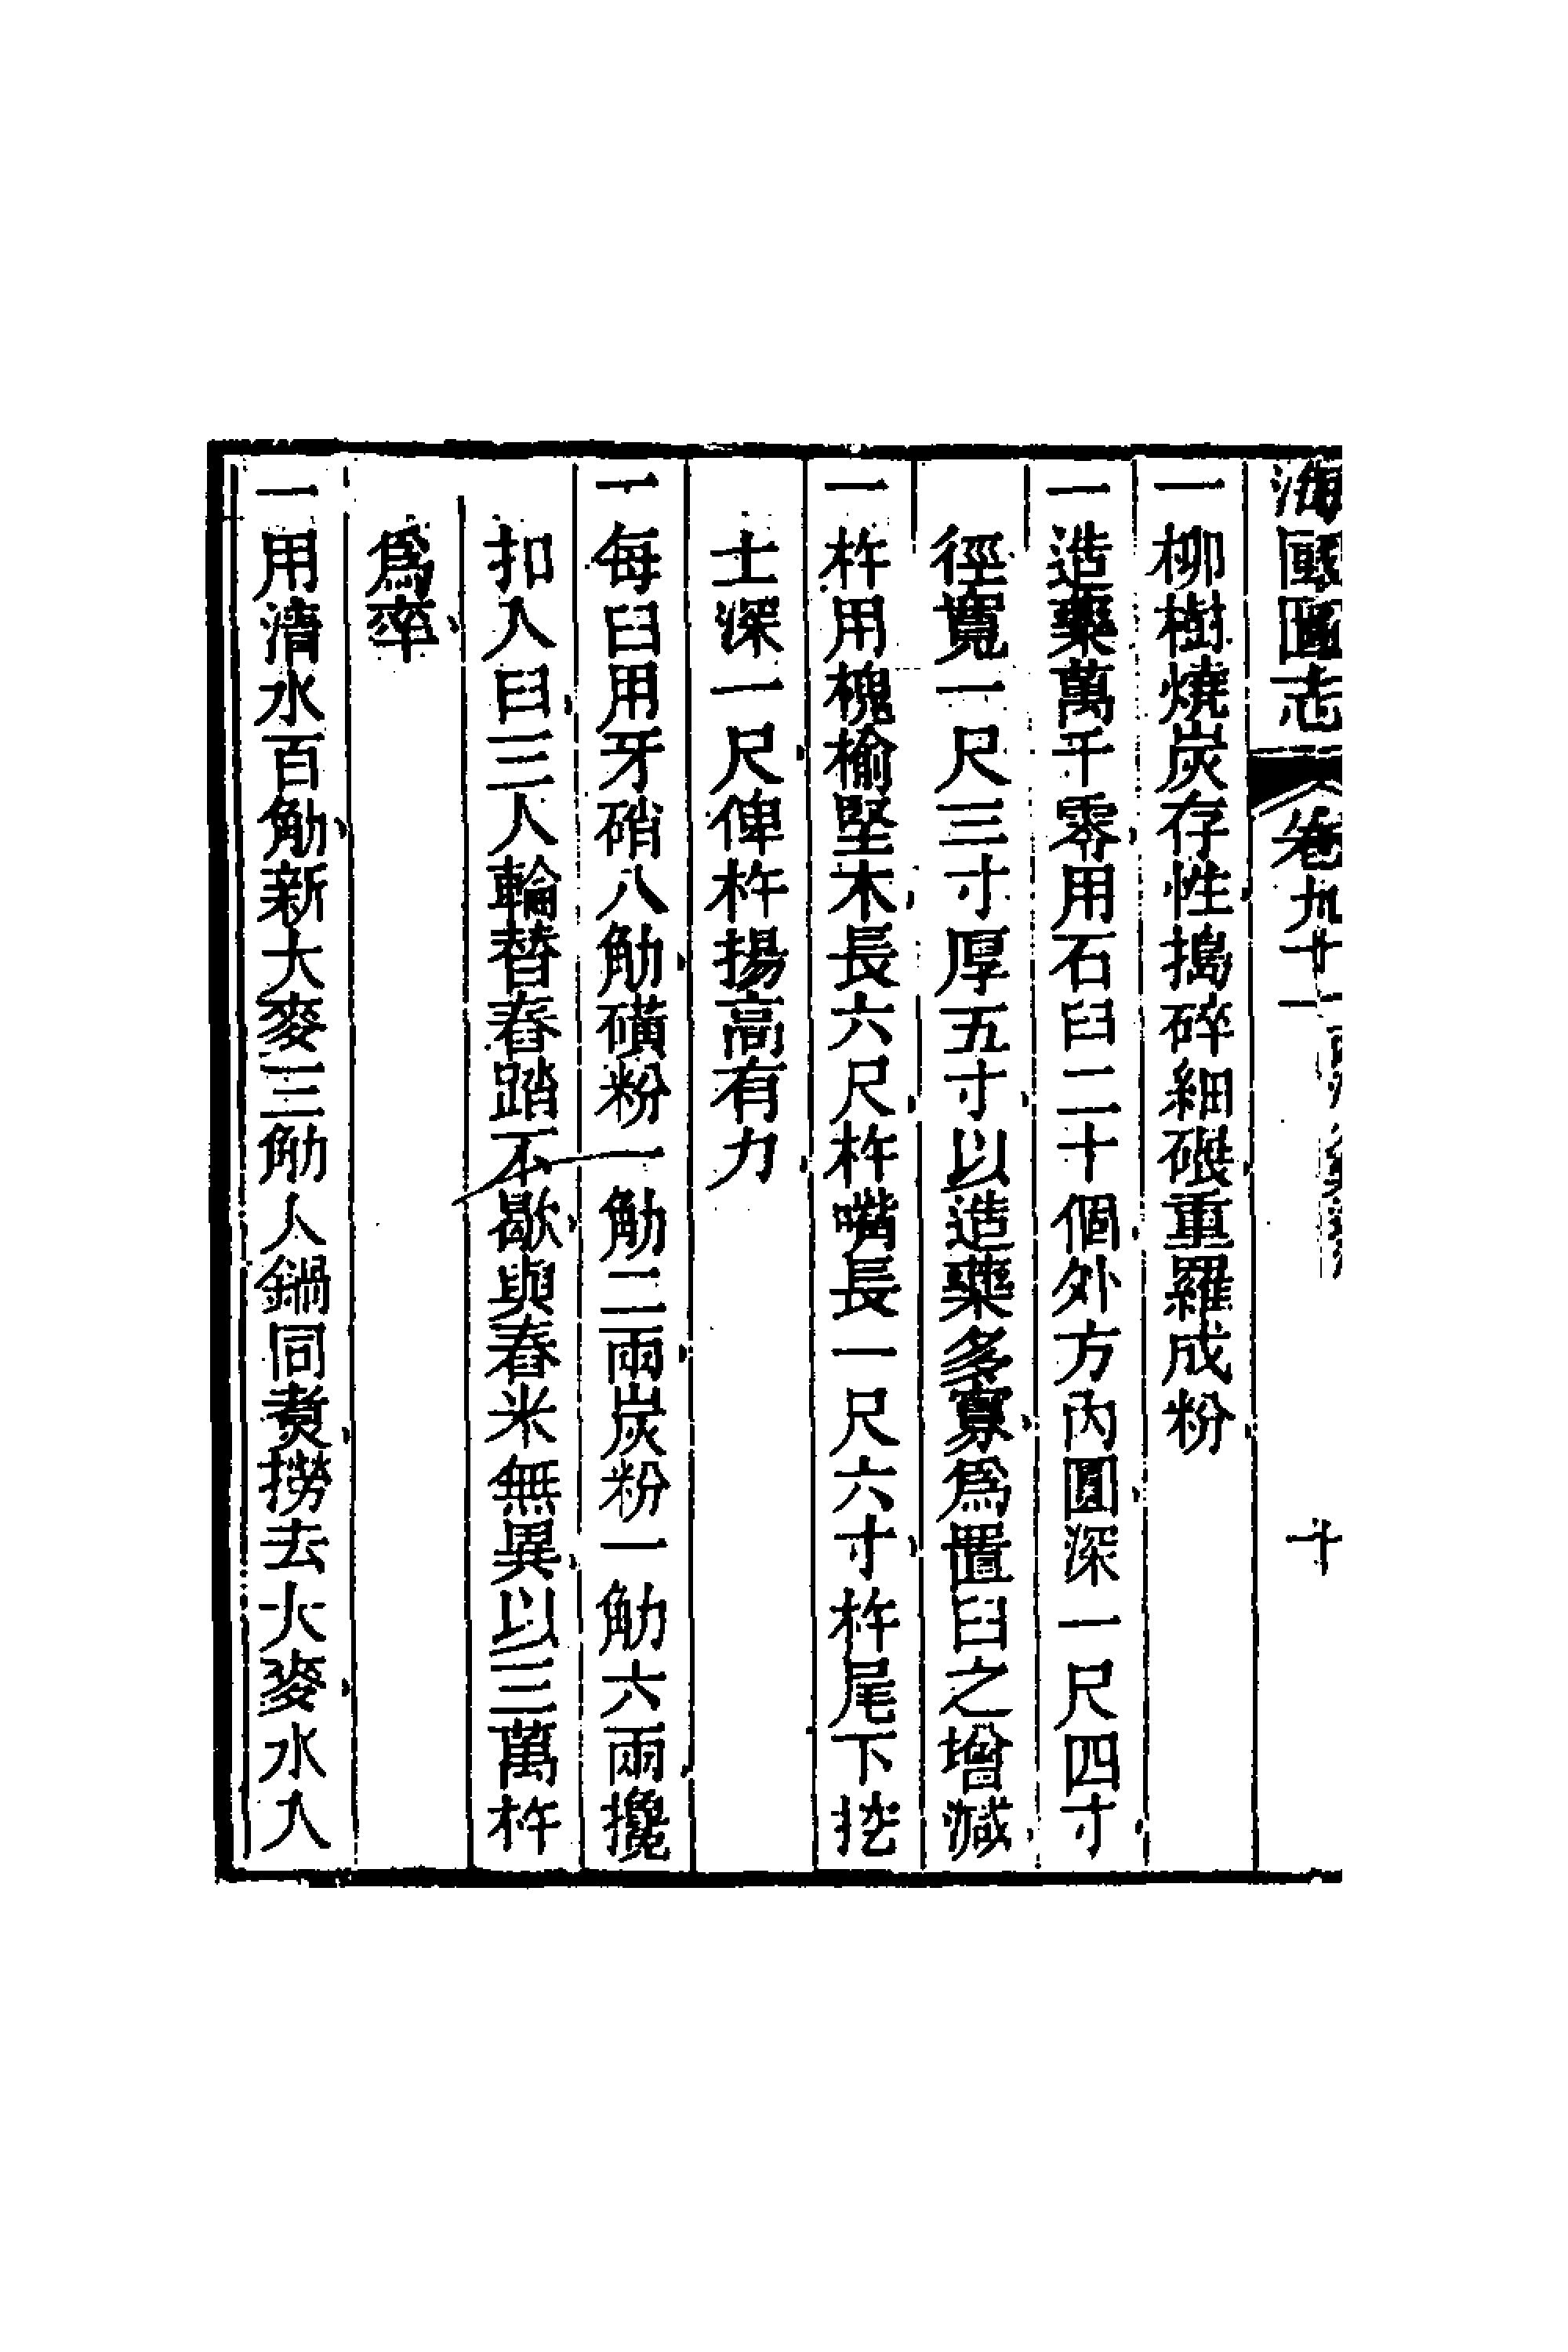 海國圖志 卷九十一 十
一柳樹燒炭存性搗碎細碾重羅成粉
一造藥萬千零用石臼二十個外方內圓深一尺四寸
徑寬一尺三寸厚五寸以造藥多寡爲置臼之增減
一杵用槐榆堅木長六尺杵嘴長一尺六寸杵尾下挖
土深一尺俾杵揚高有力
一每臼用牙硝八觔磺粉一觔二兩炭粉一觔六兩攙
扣入臼三人輪替舂踏不歇與舂米無異以三萬杵
爲率
一用清水百觔新大麥三觔入鍋同煑撈去大麥水入